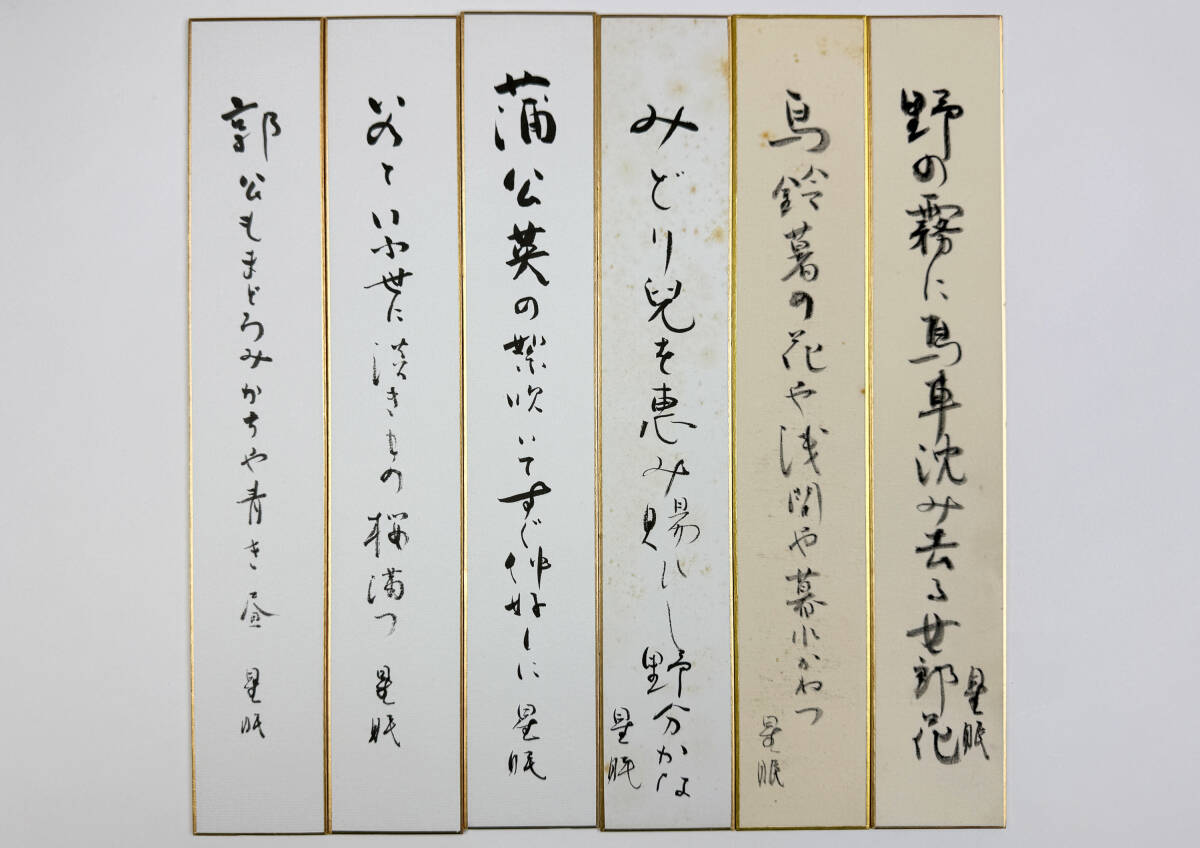 野の霧に馬車沈み去る女郎花
星眠
馬鈴薯の花や浅間や暮れかねつ
星眠
みどり兒を恵み賜ひし野分かな
星眠
蒲公英の絮吹いてすぐ仲好しに
星眠
いふ世に淡き 桜満つ
星眠
郭公もまどろみがちや青き昼
星眠